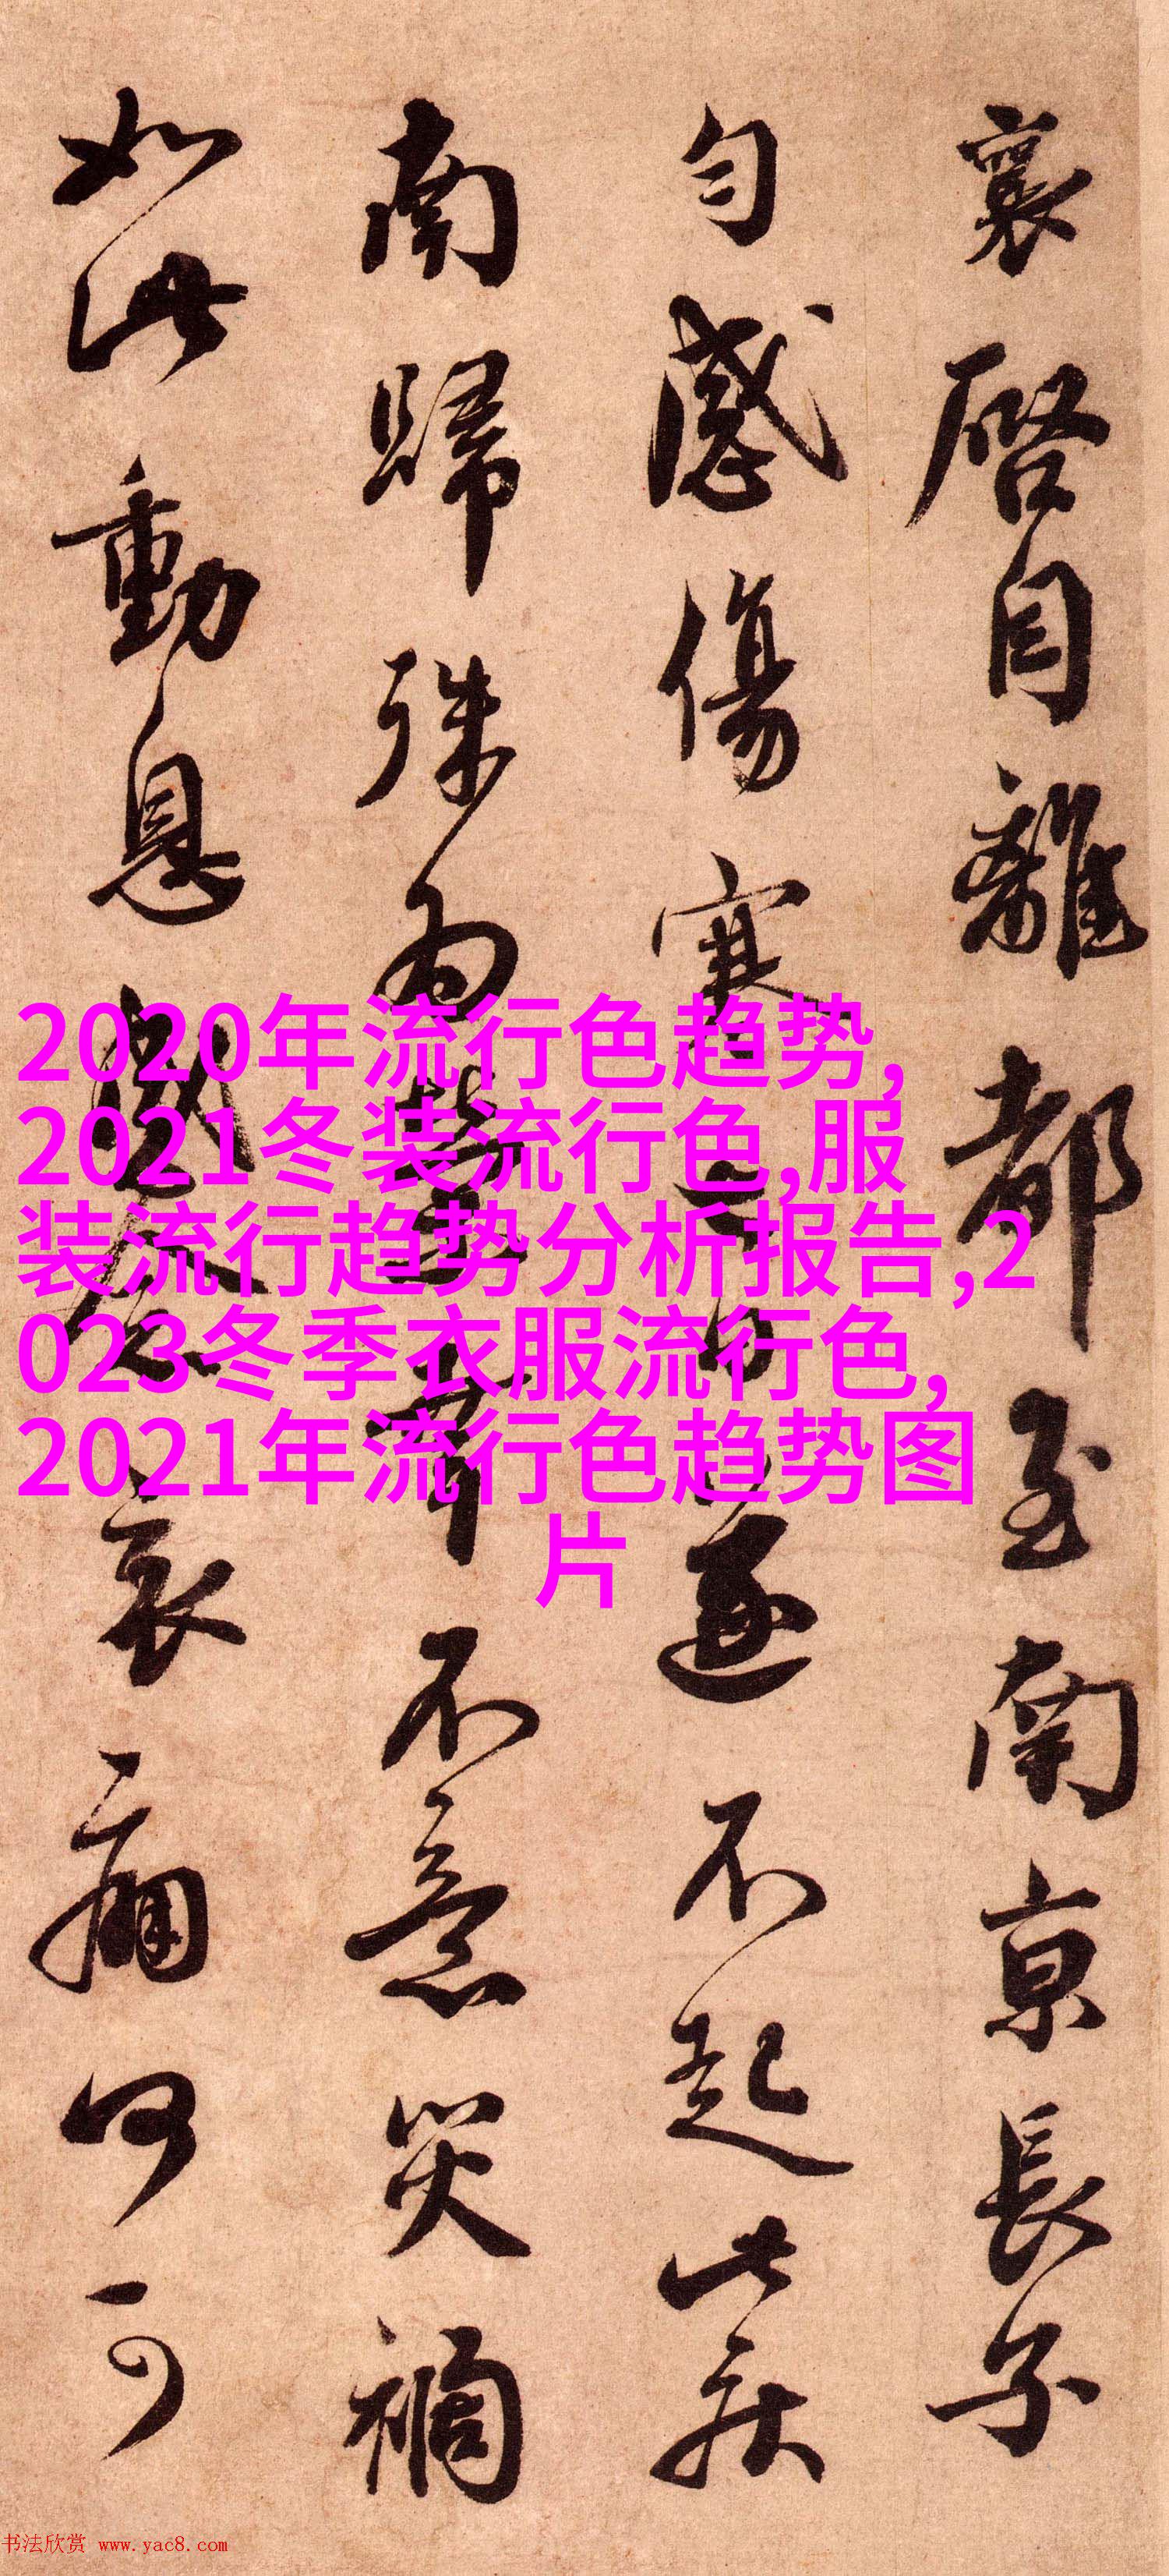 襄啓自離都至南京長子
勻感傷寒七日遂不起此疾
南歸殊為榮幸不意災禍
如此動息感念哀痛何可
2020年流行色趋势,
2021冬装流行色,服
装流行趋势分析报告,2
023冬季衣服流行色,
2021年流行色趋势图
片
书法欣赏 www.yac8.com